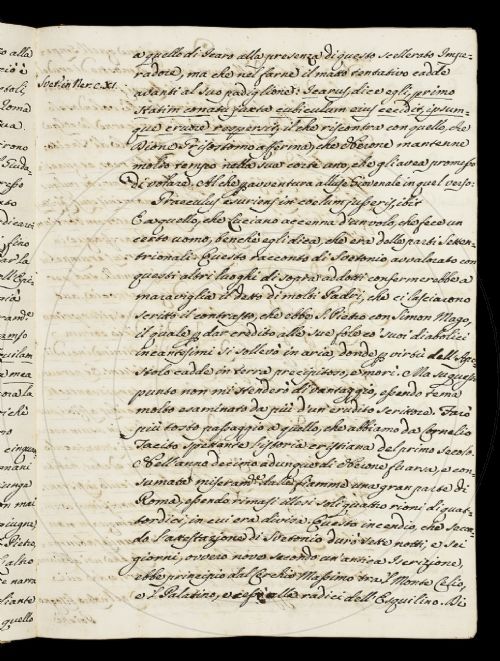 Svet. in Ner. c. XI.
a quello di Icaro alla presenza di questo scellerato Impe-
radore, ma che nel farne il primo tentativo cadde
avanti al suo padiglione: Icarus, dice egli, primo
statim conatu juxta cubiculum ejus decidit, ipsum-
que cruore respersit; il che riscontra con quello, che
Dione Crisostomo afferma, che Nerone mantenne
molto tempo nella sua corte uno, che gli avea promesso
di volare. Al che p avventura alluse Giovenale in quel verso:
Graeculus esuriens in coelum jusseris ibit
E a quello, che Luciano accenna d'un volo, che fece un
certo uomo, benchè egli dica, che era delle parti Setten-
trionali. Questo racconto di Svetonio avvalorato con
questi altri luoghi di sopra addotti confermerebbe a
maraviglia il detto di molti Padri, che ci lasciarono
scritto il contrasto, che ebbe S. Pietro con Simon Mago,
il quale p dar credito alle sue fole co' suoi diabolici
incantesimi si sollevò in aria, donde p virtù dell'Apo-
stolo cadde in terra precipitoso, e morì. Ma su questo
punto non mi stenderò di vantaggio, essendo tema
molto esaminato da più d'un erudito scrittore. Farò
più tosto passaggio a quello, che abbiamo da Cornelio
Tacito spettante l'istoria cristiana del primo secolo.
Nell'anno decimo adunque di Nerone fu arsa, e con
sumata miseramte dalle fiamme una gran parte di
Roma, essendo rimasi illesi soli quattro rioni di quat-
tordici, in cui era divisa. Questo incendio, che secon-
do l'attestazione di Svetonio durò sette notti, e sei
giorni, ovvero nove secondo un'antica Iscrizione,
ebbe principio dal Cerchio Massimo tra 'l Monte Celio,
e 'l Palatino, e cessò alle radici dell'Esquilino. Di